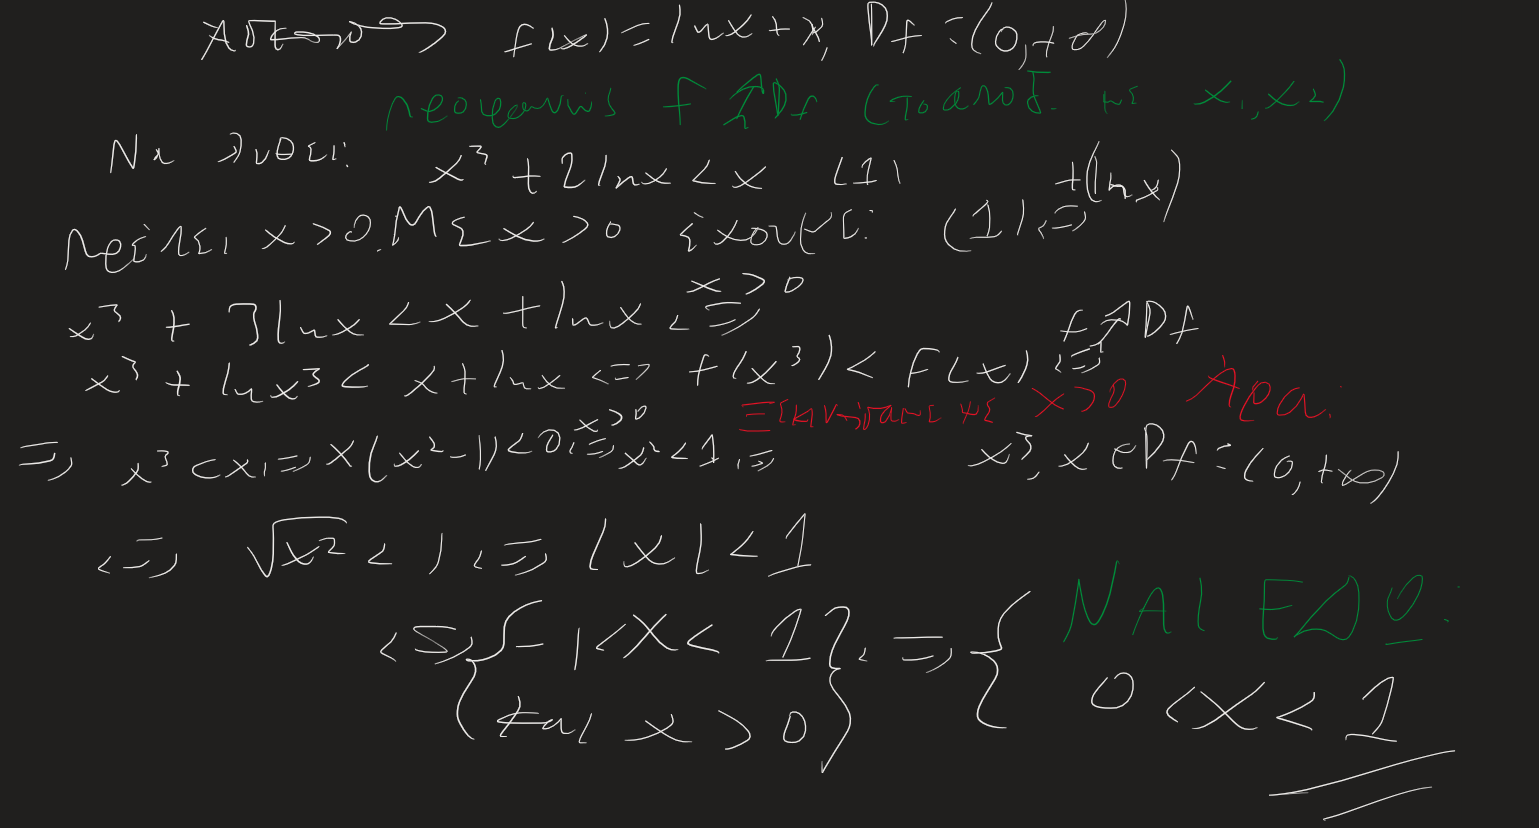 f(x) = lnx + x, Df = (0, +∞)
προφανως f ↑ Df (το αποδ. με x1, x2)
Να λυθει:
x³ + 2lnx < x (1)
πρέπει x > 0. Με x > 0 έχουμε: (1) <=> +(lnx)
x³ + 3lnx < x + lnx <=> x > 0
x³ + lnx³ < x + lnx <=> f(x³) < f(x) <=> f ↑ Df
Ξεκινησαμε με x > 0 Άρα:
<=> x³ < x <=> x(x² - 1) < 0 <=> x > 0 x² < 1 <=>
x³, x ∈ Df = (0, +∞)
<=> √x² < 1 <=> |x| < 1
<=> { -1 < x < 1 και x > 0 } <=> {
ΝΑΙ ΕΔΩ:
0 < x < 1